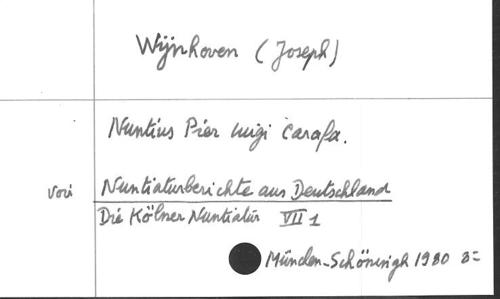 Wijnhoven (Joseph)
Nuntius Pier Luigi Carafa.
Voir Nuntiaturberichte aus Deutschland
Die Kölner Nuntiatur VII 1
München-Schöningh 1980 8=